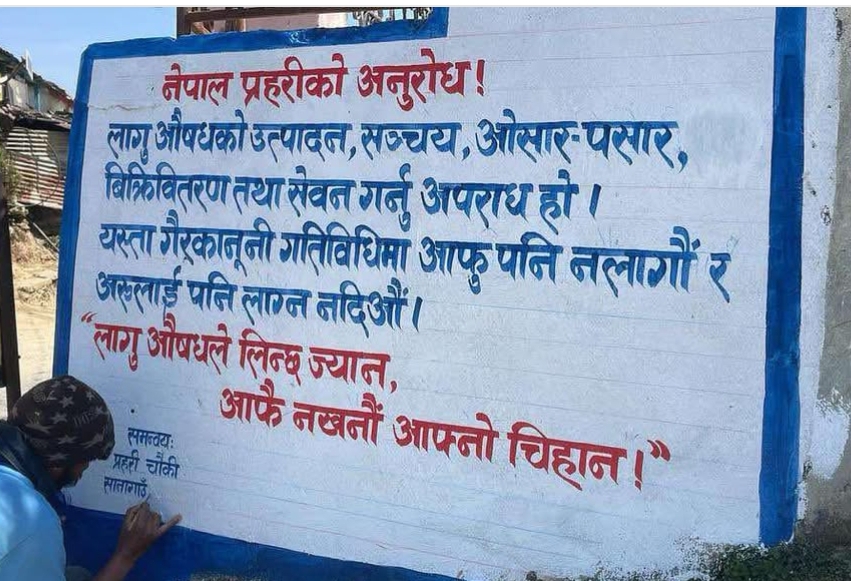 नेपाल प्रहरीको अनुरोध!
लागु औषधको उत्पादन, सञ्चय, ओसार-पसार,
बिक्रिवितरण तथा सेवन गर्नु अपराध हो ।
यस्ता गैरकानूनी गतिविधिमा आफु पनि नलागौं र
अरुलाई पनि लाग्न नदिऔं ।
"लागु औषधले लिन्छ ज्यान,
आफै नखनौं आफ्नो चिहान !"
समन्वयः
प्रहरी चौकी
सानागाउँ,